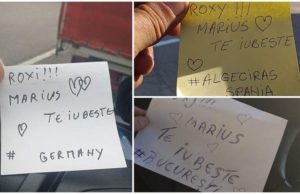 ROXI!!!
MARIUS
TE IUBESTE
# GERMANY
ROXY!
MARIUS
TE IUBESTE
#ALGECIRAS
SPANIA
MARIUS
TE
IUBESTE
#BUCURESTI